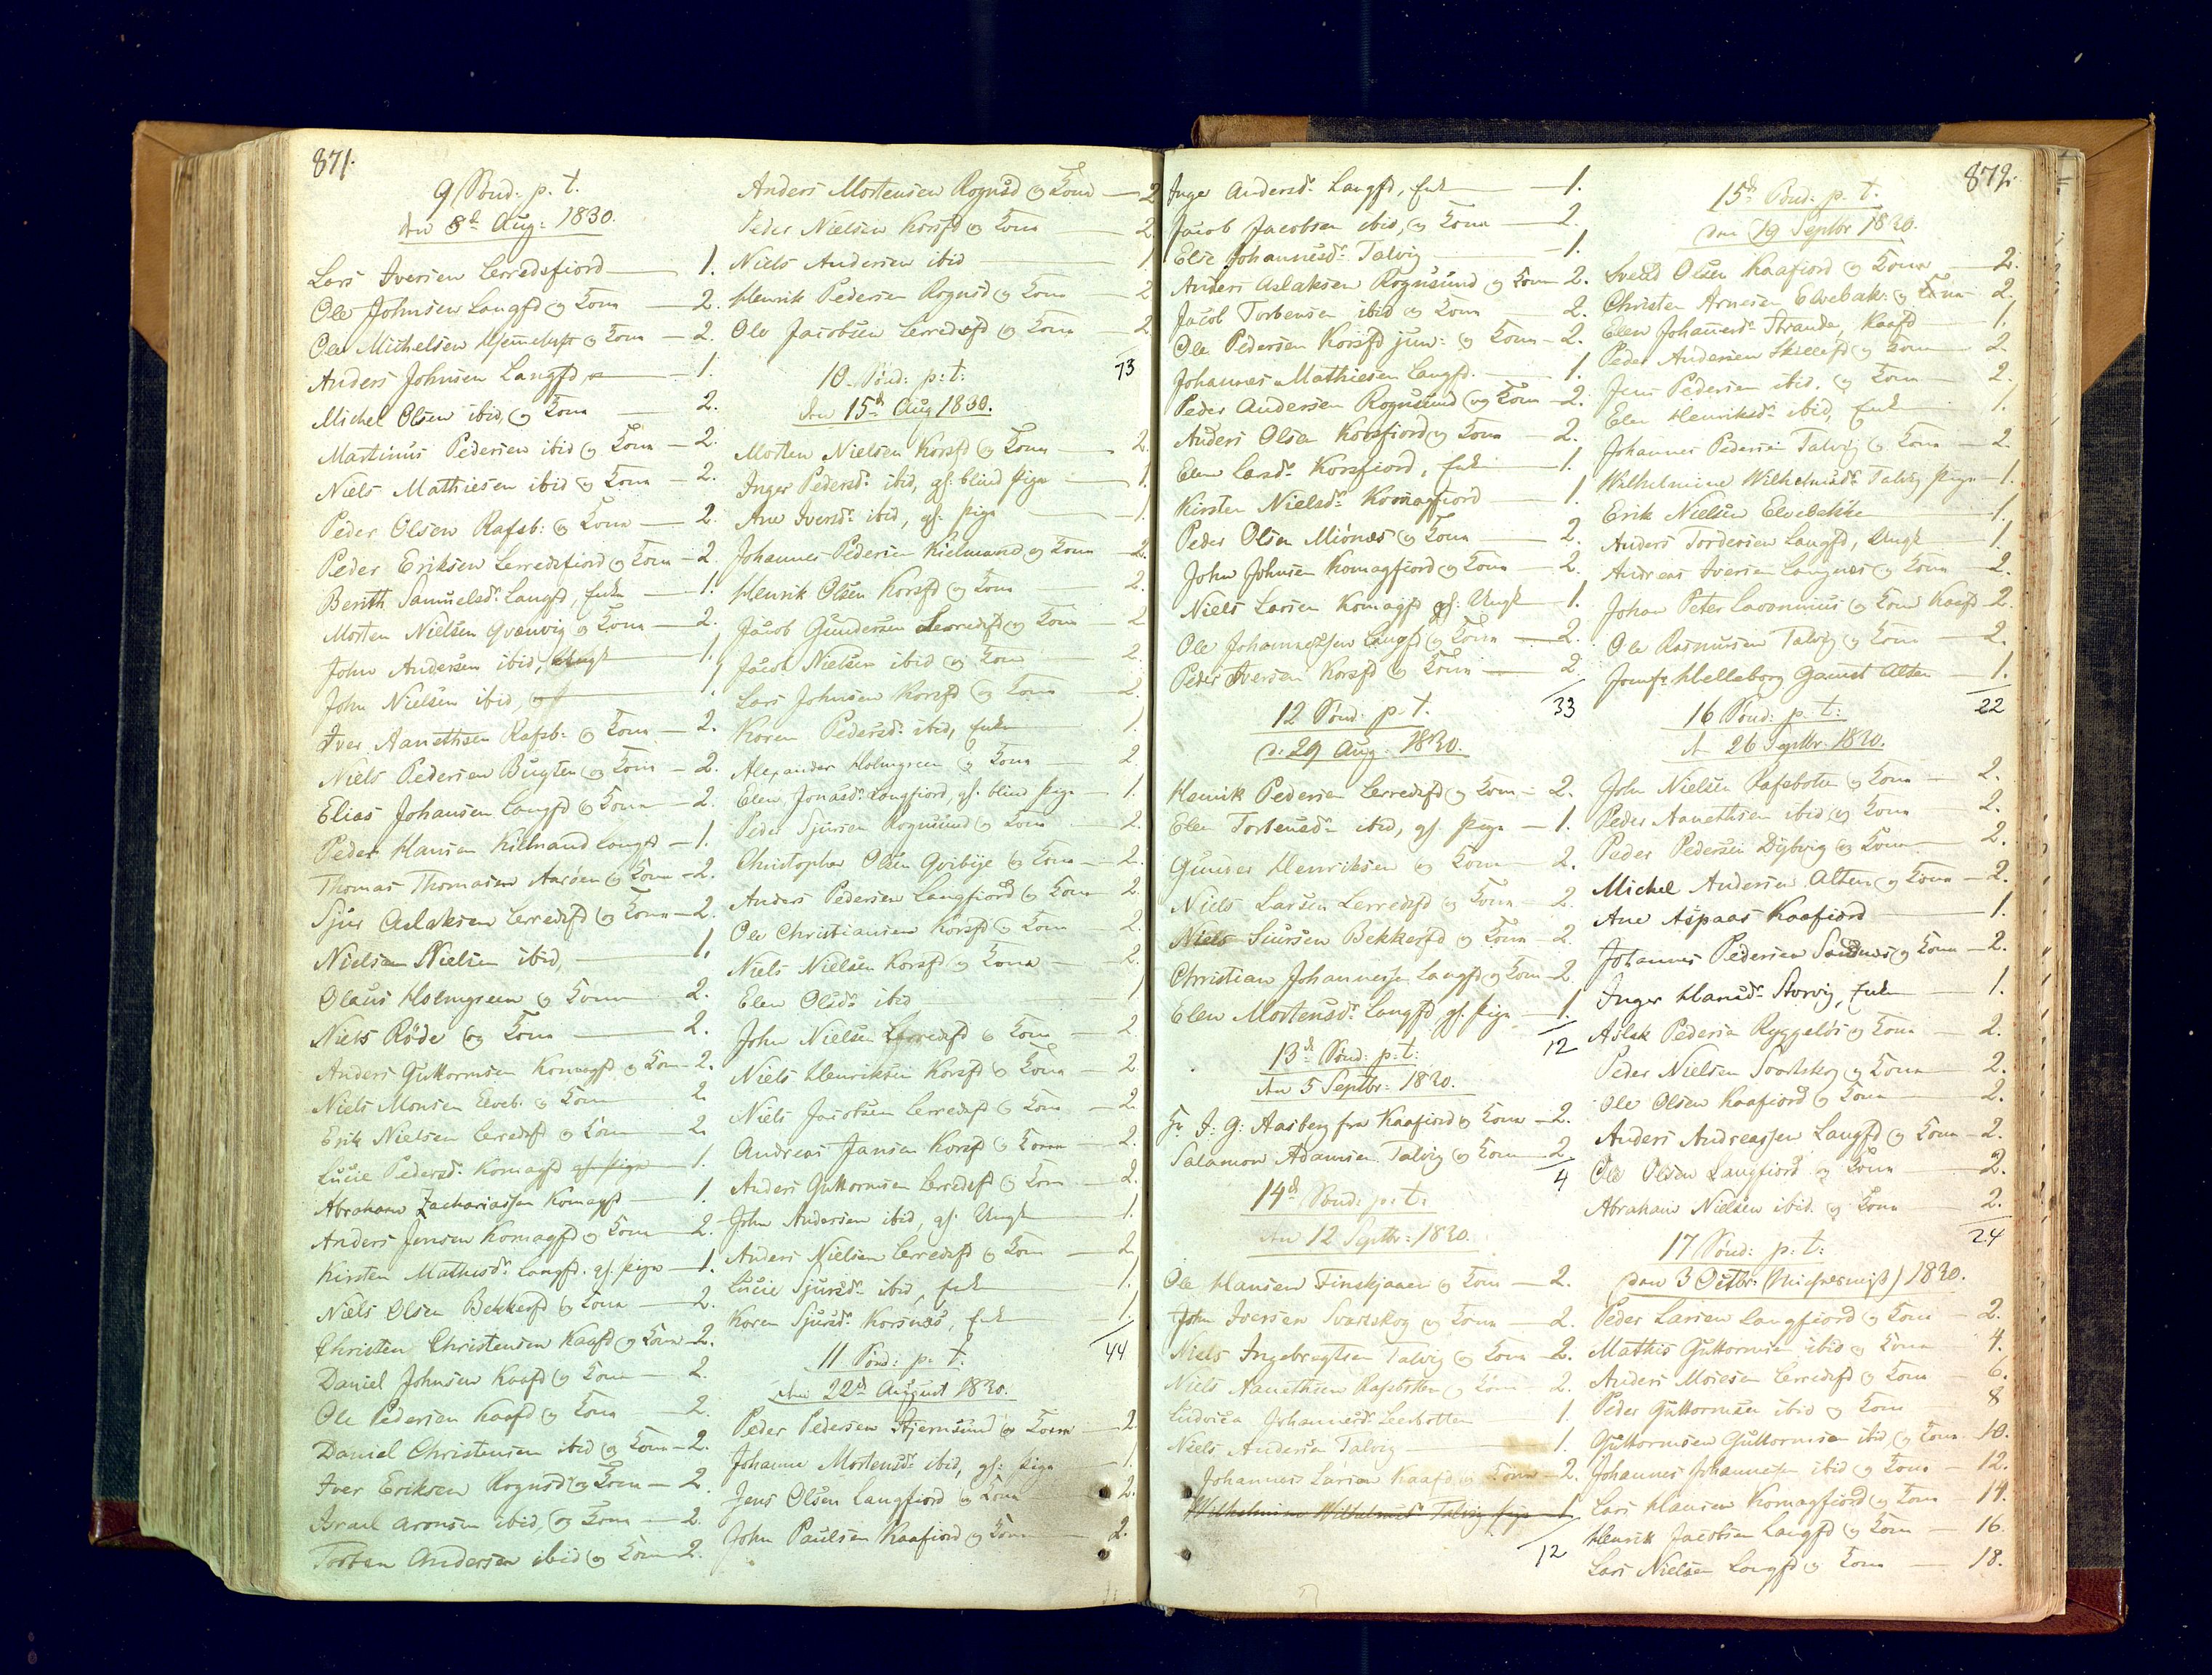 871.
9 Sønd: p. t.
den 8d Aug: 1830.
Lars Iversen Lerredsfiord 1.
Ole Johnsen Langfd og Kona 2.
Ole Michelsen og Kona 2.
Anders Johnsen Langfd 1.
Michel Olsen ibid, og Kona 2.
Martinus Pedersen ibid og Kona 2.
Niels Mathiesen ibid og Kona 2.
Peder Olsen Rafsb: og Kona 2.
Peder Eriksen Lerredsfiord og Kona 2.
Berith Samuelsdr Langfd, Enke 1.
Morten Nielsen Qvænvig og Kona 2.
John Andersen ibid, Ungk 1.
John Nielsen ibid, 1.
Iver Aanethsen Rafsb: og Kona 2.
Niels Pedersen Bugten og Kona 2.
Elias Johansen Langfd og Kona 2.
Peder Hansen Kilmand Langfd 1.
Thomas Thomasen Aarøen og Kona 2.
Sjur Aslaksen Lerredsfd og Kona 2.
Nielsen Nielsen ibid, 1.
Olaus Holmgreen og Kona 2.
Niels Røde og Kona 2.
Anders Guttormsen Komagfd og Kona 2.
Niels Monsen Elveb: og Kona 2.
Erik Nielsen Lerredsfd og Kona 2.
Lucie Pedersdr Komagfd gl. Pige 1.
Abraham Zachariassen Komagfd 1.
Anders Jensen Komagfd og Kona 2.
Kirsten Mathisdr Langfd. gl. Pige 1.
Niels Olsen Bekkerfd og Kona 2.
Christen Christensen Kaafd og Kona 2.
Daniel Johnsen Kaafd og Kona 2.
Ole Pedersen Kaafd og Kona 2.
Daniel Christensen ibid og Kona 2.
Iver Eriksen Rognsd og Kona 2.
Israel Aronsen ibid, og Kona 2.
Torben Andersen ibid og Kona 2.
Anders Mortensen Rognsd og Kona 2
Peder Nielsen Korsfd og Kona 2.
Niels Andersen ibid 1
Henrik Pedersen Rognsd og Kona 2
Ole Jacobsen Lerredsfd og Kona 2.
73
10 Sønd: p: t:
den 15d Aug 1830.
Morten Nielsen Korsfd og Kona 2.
Inger Pedersdr ibid, gl: blind Pige 1.
Ane Iversdr ibid, gl. Pige 1.
Johannes Pedersen Kielmand og Kona 2.
Henrik Olsen Korsfd og Kona 2.
Jacob Gundersen Lerredsfd og Kona 2
Jacob Nielsen ibid og Kona 2.
Lars Johnsen Korsfd og Kona 2.
Karen Pedersdr ibid, Enke 1.
Alexander Holmgreen og Kona 2.
Elen Jonasdr Langfiord, gl. blind Pige 1.
Peder Sjursen Rognsund og Kona 2.
Christopher Olsen Qvibye og Kona 2.
Anders Pedersen Langfiord og Kona 2.
Ole Christiansen Korsfd og Kona 2.
Niels Nielsen Korsfd og Kona 2.
Elen Olsdr ibid 1
John Nielsen Lerredsfd og Kona 2
Niels Henriksen Korsfd og Kona 2
Niels Jacobsen Lerredsfd og Kona 2
Andreas Jansen Korsfd og Kona 2.
Anders Guttormsen Lerredsfd og Kona 2.
John Andersen ibid, gl. Ungk 1.
Anders Nielsen Lerredsfd og Kona 2
Lucie Sjursdr ibid, Enke 1.
Karen Sjursdr Korsnæs, Enke 1.
44
11 Sønd: p. t.
den 22d August 1830.
Peder Pedersen Stjernsund og Kona 2.
Johanne Mortensdr ibid, gl: Pige 1.
Jens Olsen Langfiord og Kona 2.
John Paulsen Kaafiord og Kona 2.
872.
Inger Andersdr Langfd, Enke 1.
Jacob Jacobsen ibid, og Kona 2.
Elie Johannesdr Talvig 1.
Anders Aslaksen Rognsund og Kona 2.
Jacob Torbensen ibid og Kona 2.
Ole Pedersen Korsfd jun: og Kona 2.
Johannes Mathiesen Langfd. 1.
Peder Andersen Rognsund og Kona 2.
Anders Olsen Korsfiord og Kona 2.
Elen Larsdr Korsfiord, Enke 1.
Kirsten Nielsdr Komagfiord 1.
Peder Olsen Miønæs og Kona 2.
John Johnsen Komagfiord og Kona 2.
Niels Larsen Komagfd gl: Ungk 1.
Ole Johannessen Langfd og Kona 2.
Peder Iversen Korsfd og Kona 2.
33
12 Sønd: p. t.
d: 29 Aug: 1830.
Henrik Pedersen Lerredsfd og Kona 2.
Elen Torbensdr ibid, gl. Pige 1.
Gunder Henriksen og Kona 2.
Niels Larsen Lerredsfd og Kona 2.
Niels Siursen Bekkerfd og Kona 2.
Christian Johannessen Langfd og Kona 2
Elen Mortensdr Langfd gl. Pige 1.
12
13d Sønd: p: t:
den 5 Septbr: 1830.
Hr. J: G: Aasberg fra Kaafiord og Kona 2.
Salamon Adamsen Talvig og Kona 2
4
14d Sønd: p: t:
den 12 Septbr: 1830.
Ole Hansen Finskjæær og Kona 2.
John Iversen Svartskog og Kona 2.
Niels Ingebregtsen Talvig og Kona 2.
Niels Aanethsen Rafsbotten og Kona 2.
Ludvica Johannesdr Leerbotten 1.
Niels Andersen Talvig 1.
Johannes Larsen Kaafd og Kona 2.
Wilhelmine Wilhelmsdr Talvig Pige 1
12
15d Sønd: p. t.
den 19 Septbr 1830.
Svend Olsen Kaafiord og Kona 2.
Christen Arnesen Elvebak: og Kona 2.
Elen Johannesdr Strande, Kaafd 1.
Peder Andersen Skillefd og Kona 2.
Jens Pedersen ibid. og Kona 2.
Elen Henriksdr ibid, Enke 1.
Johannes Pedersen Talvig og Kona 2
Wilhelmine Wilhelmsdr Talvig Pige 1.
Erik Nielsen Elvebakke 1.
Anders Tordersen Langfd, Ungk 1.
Andreas Iversen Langnæs og Kona 2.
Johan Peter og Kona Kaafd 2.
Ole Rasmusen Talvig og Kona 2.
Jomfr Helleborg Gamst Alten 1.
22
16 Sønd: p. t:
d. 26 Septbr. 1830.
John Nielsen Rafsbotten og Kona 2.
Peder Aanethsen ibid og Kona 2.
Peder Pedersen Dybvig og Kona 2.
Michel Andersen Alten og Kona 2.
Ane Aspaas Kaafiord 1.
Johannes Pedersen Sandnæs og Kona 2.
Inger Hansdr Storvig, Enke 1.
Aslak Pedersen og Kona 2.
Peder Nielsen Svartskog og Kona 2.
Ole Olsen Kaafiord og Kona 2.
Anders Andreassen Langfd og Kona 2.
Ole Olsen Langfiord og Kona 2.
Abraham Nielsen ibid. og Kona 2.
24
17 Sønd: p: t:
den 3 Octbr: 1830.
Peder Larsen Langfiord og Kona 2.
Mathis Guttormsen ibid og Kona 4.
Anders Mosesen Lerredsfd og Kona 6.
Peder Guttormsen ibid og Kona 8
Guttormsen Guttormsen ibid, og Kona 10.
Johannes Johannesen ibid og Kona 12.
Lars Hansen Komagfiord og Kona 14.
Henrik Jacobsen Langfd og Kona 16.
Lars Nielsen Langfd og Kona 18.